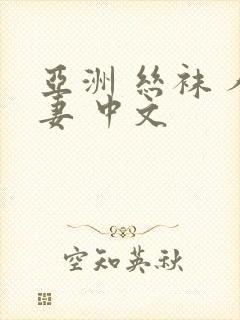 亞洲 絲袜 人
妻 中文
空知英秋